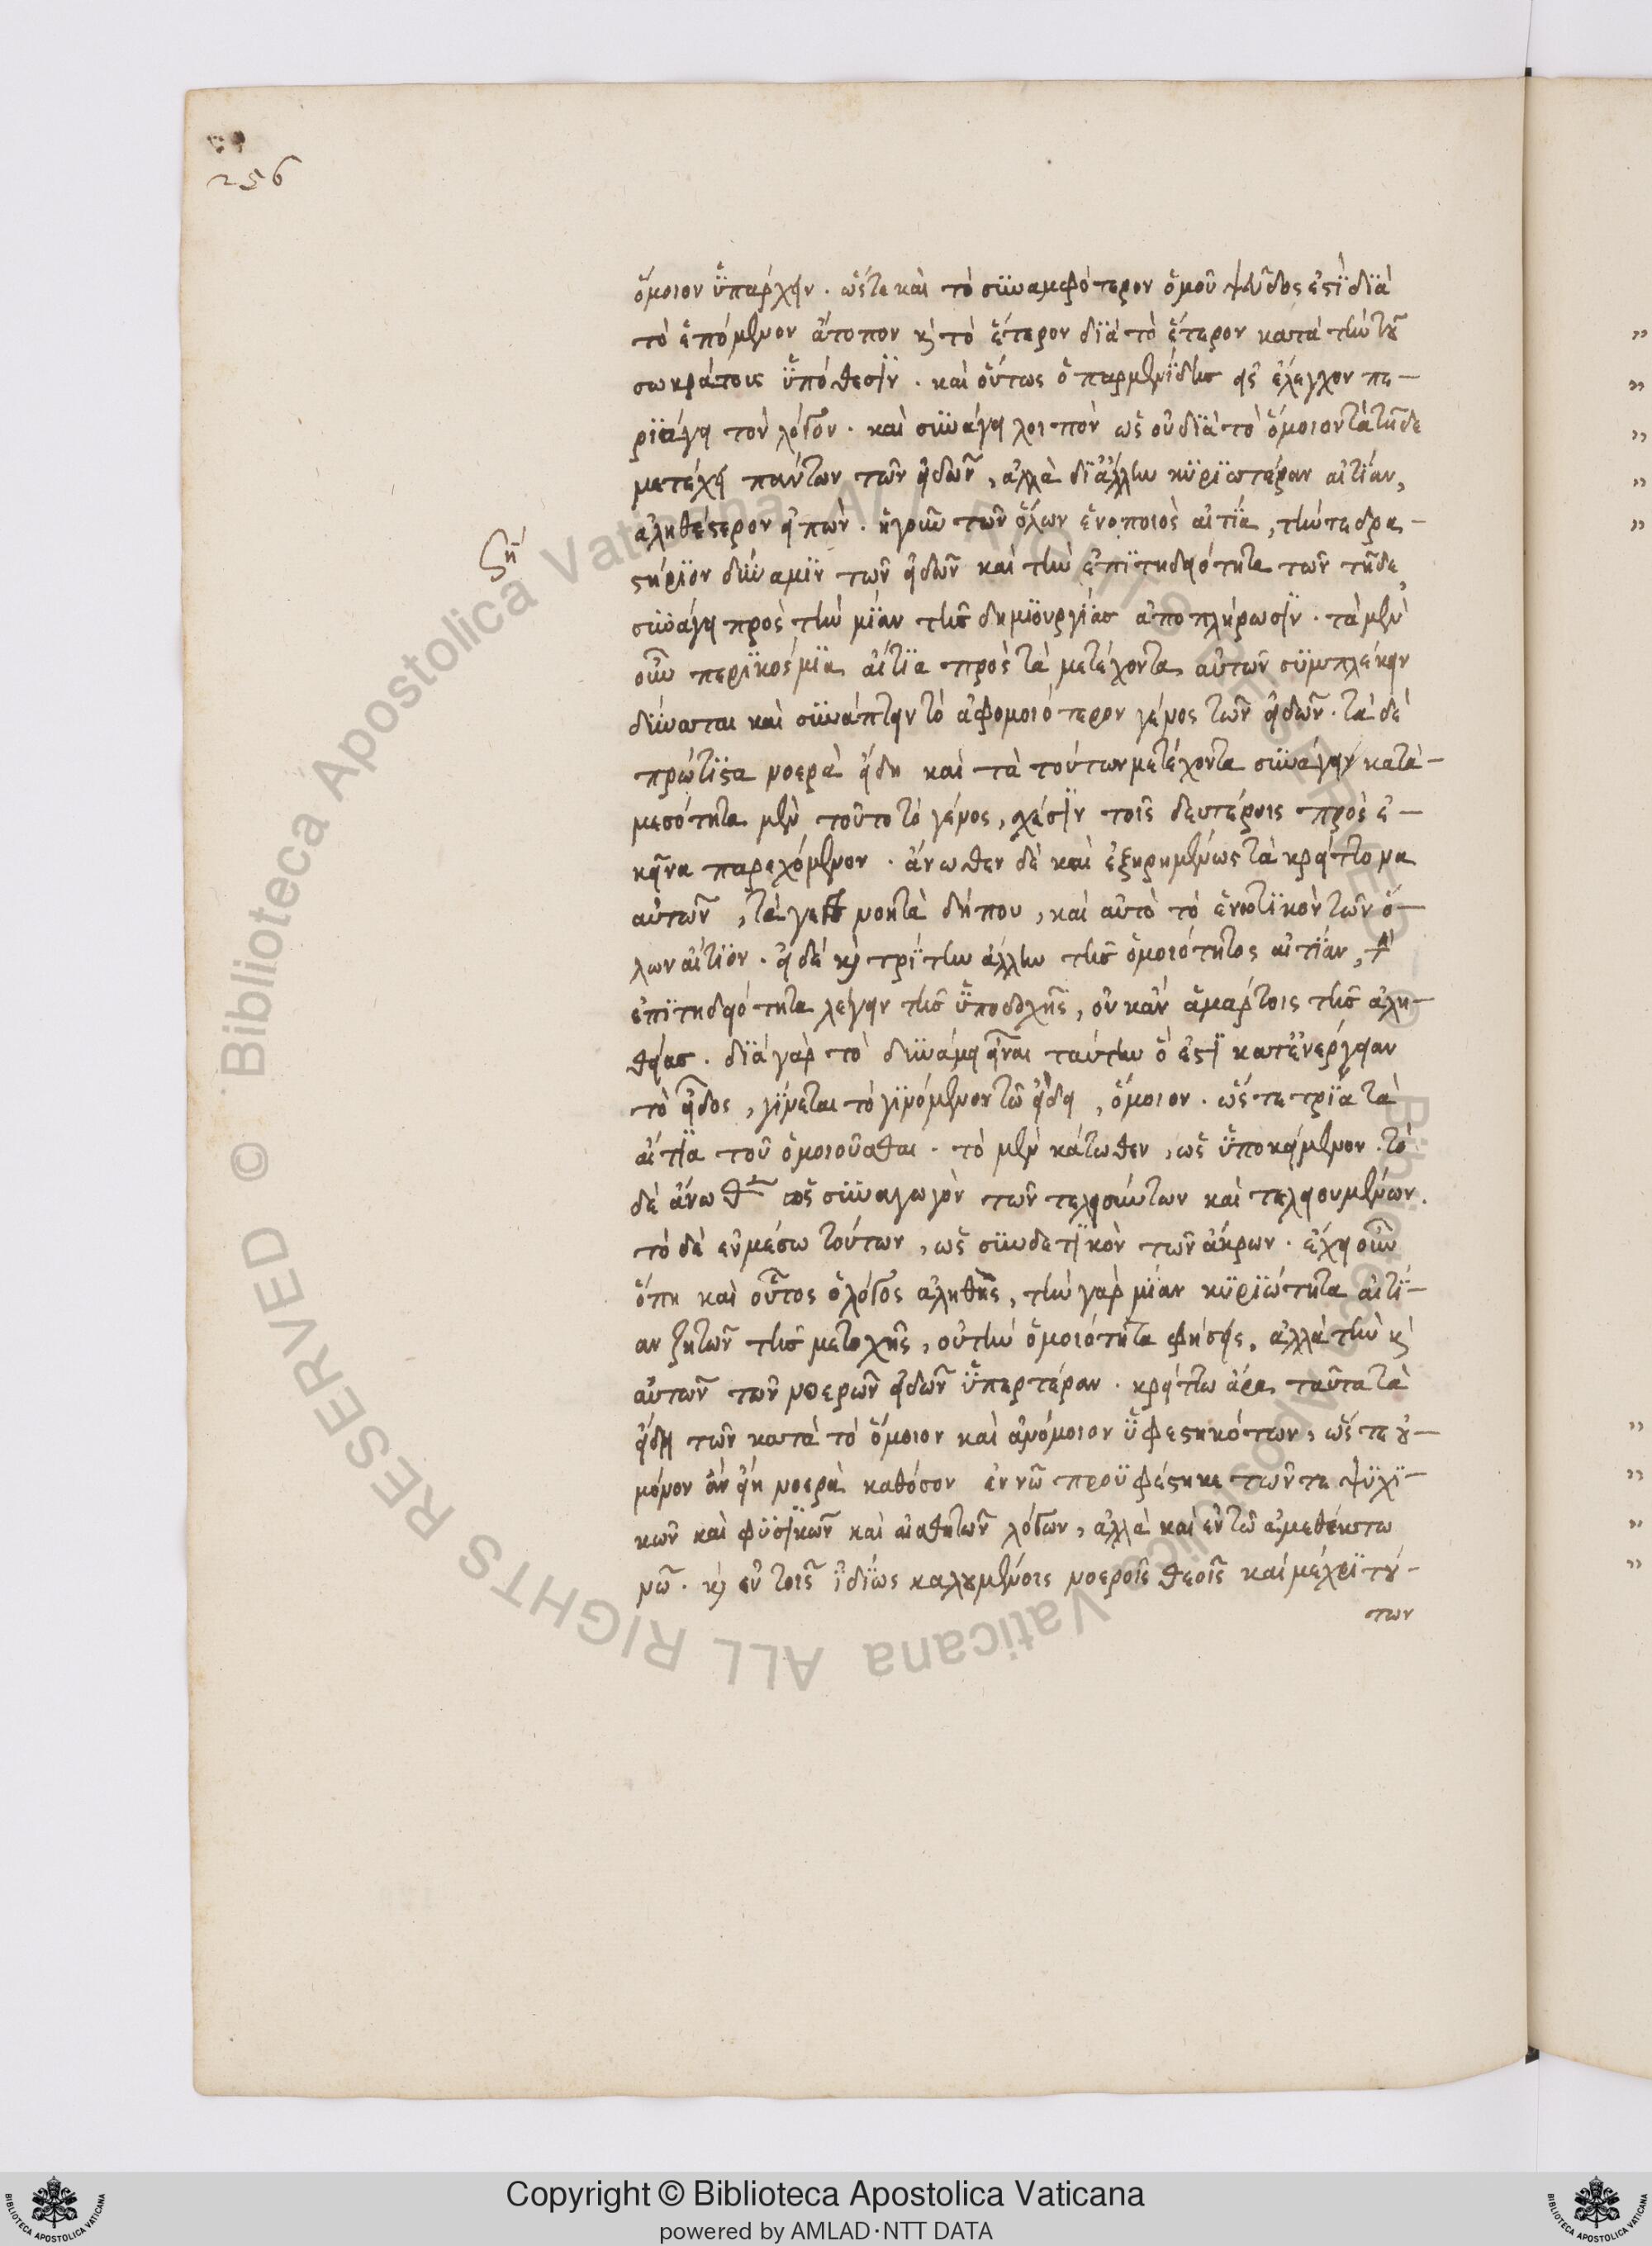 256
ὅμοιον ὑπάρχειν. ὥστε καὶ τὸ συναμφότερον ὁμοῦ ψεῦδος ἐστὶ διὰ
τὸ ἑπόμενον ἄτοπον κ τὸ ἕτερον διὰ τὸ ἕτερον κατὰ τὴν τοῦ
σωκράτους ὑπόθεσιν. καὶ οὕτως ὁ παρμενίδης εἰς ἔλεγχον πε-
ριάγει τὸν λόγον. καὶ συνάγει λοιπὸν ὡς οὐ διὰ τὸ ὅμοιον τὰ τῆδε
μετέχει πάντων τῶν εἰδῶν, ἀλλὰ δι ἄλλην κυριωτέραν αἰτίαν,
ἀληθέστερον εἰπὼν. ἡ γοῦν τῶν ὅλων ἑνοποιὸς αἰτία, τήν τε δρα-
στήριον δύναμιν τῶν εἰδῶν καὶ τὴν ἐπιτηδειότητα τῶν τῆδε,
συνάγει πρὸς τὴν μίαν τῆς δημιουργίας ἀποπλήρωσιν. τὰ μὲν
οὖν περικόσμια αἴτια πρὸς τὰ μετέχοντα αὐτῶν συμπλέκειν
δύναται καὶ συνάπτειν τὸ ἀφομοιότερον γένος τῶν εἰδῶν. τὰ δὲ
πρώτιστα νοερὰ εἴδη καὶ τὰ τούτων μετέχοντα συνάγειν κατὰ-
μεσότητα μὲν τοῦτο τὸ γένος, σχέσιν τοῖς δευτέροις πρὸς ἐ-
κεῖνα παρεχόμενον. ἄνωθεν δὲ καὶ ἐξῃρημένως τὰ κρείττονα
αὐτῶν, τὰ γε νοητὰ δήπου, καὶ αὐτὸ τὸ ἑνωτικὸν τῶν ὅ-
λων αἴτιον. εἰ δέ κ τρίτην ἄλλην τῆς ὁμοιότητος αἰτίαν,
ἐπιτηδειότητα λέγειν τῆς ὑποδοχῆς, οὐκ ἂν ἁμάρτοις τῆς ἀλη-
θείας. διὰ γὰρ τὸ δυνάμει εἶναι ταύτην ὅ ἐστι κατ ἐνέργειαν
τὸ εἶδος, γίνεται τὸ γινόμενον τῷ εἴδει, ὅμοιον. ὥστε τρία τὰ
αἴτια τοῦ ὁμοιοῦσθαι. τὸ μὲν κάτωθεν, ὡς ὑποκείμενον. τὸ
δὲ ἄνωθεν ὡς συναγωγὸν τῶν τελειούντων καὶ τελειουμένων.
τὸ δὲ ἐν μέσω τούτων, ὡς συνδετικὸν τῶν ἄκρων. ἔχει οὖν
ὅπη καὶ οὗτος ὁ λόγος ἀληθὴς, τὴν γὰρ μίαν κυριώτητα αἰτί-
αν ζητῶν τῆς μετοχῆς, οὐ τὴν ὁμοιότητα φήσεις, ἀλλὰ τὴν κ
αὐτῶν τῶν νοερῶν εἰδῶν ὑπερτέραν. κρείττω ἄρα ταῦτα τὰ
εἴδη τῶν κατὰ τὸ ὅμοιον καὶ ἀνόμοιον ὑφεστηκότων, ὥστε οὐ-
μόνον ἂν εἴη νοερὰ καθόσον ἐν νῷ προϋφέστηκε τῶν τε ψυχι-
κῶν καὶ φυσικῶν καὶ αἰσθητῶν λόγων, ἀλλὰ καὶ ἐν τῷ ἀμεθέκτω
νῷ. κ ἐν τοῖς ἰδίως καλουμένοις νοεροῖς θεοῖς καὶ μέχρι τού-
των
Copyright © Biblioteca Apostolica Vaticana
powered by AMLAD·NTT DATA